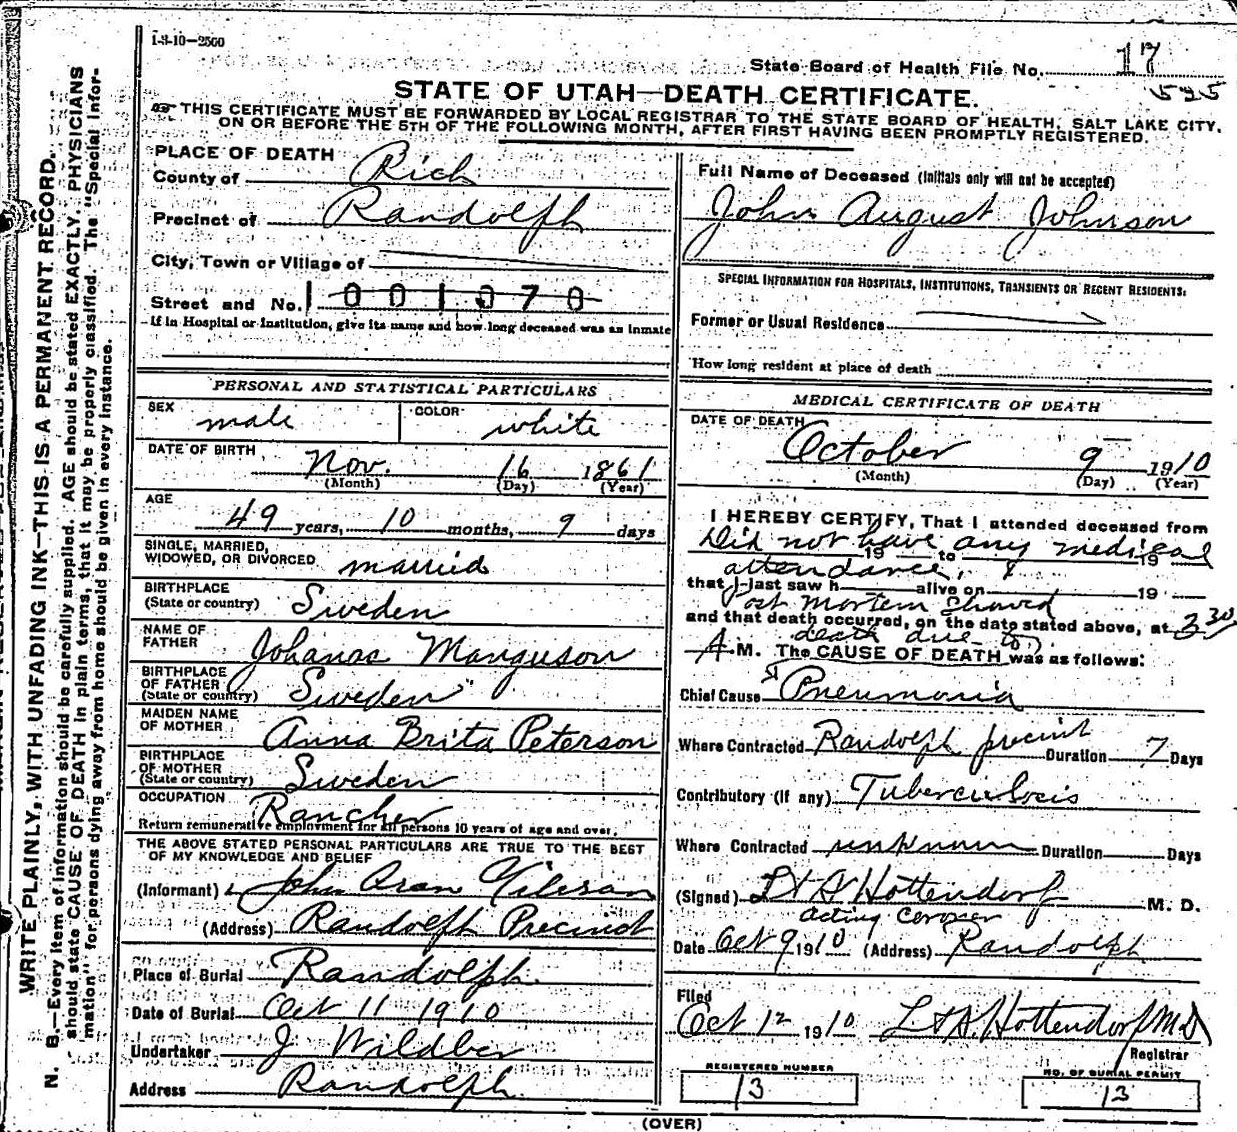 1-3-10—2500
State Board of Health File No. 17
525
STATE OF UTAH—DEATH CERTIFICATE.
☞THIS CERTIFICATE MUST BE FORWARDED BY LOCAL REGISTRAR TO THE STATE BOARD OF HEALTH, SALT LAKE CITY,
ON OR BEFORE THE 5TH OF THE FOLLOWING MONTH, AFTER FIRST HAVING BEEN PROMPTLY REGISTERED.
WRITE PLAINLY, WITH UNFADING INK—THIS IS A PERMANENT RECORD.
N. B.—Every item of information should be carefully supplied. AGE should be stated EXACTLY. PHYSICIANS
should state CAUSE OF DEATH in plain terms, that it may be properly classified. The "Special Infor-
mation" for persons dying away from home should be given in every instance.
PLACE OF DEATH
County of Rich
Precinct of Randolph
City, Town or Village of
Street and No. 1001070
If in Hospital or Institution, give its name and how long deceased was an inmate
PERSONAL AND STATISTICAL PARTICULARS
SEX male COLOR white
DATE OF BIRTH Nov. 16 1861
(Month) (Day) (Year)
AGE
49 years, 10 months, 9 days
SINGLE, MARRIED,
WIDOWED, OR DIVORCED married
BIRTHPLACE
(State or country) Sweden
NAME OF
FATHER Johanas Manguson
BIRTHPLACE
OF FATHER
(State or country) Sweden
MAIDEN NAME
OF MOTHER Anna Brita Peterson
BIRTHPLACE
OF MOTHER
(State or country) Sweden
OCCUPATION Rancher
Return remunerative employment for all persons 10 years of age and over.
THE ABOVE STATED PERSONAL PARTICULARS ARE TRUE TO THE BEST
OF MY KNOWLEDGE AND BELIEF
(Informant) John
(Address) Randolph Precinct
Place of Burial Randolph
Date of Burial Oct 11 1910
Undertaker J
Address Randolph
Full Name of Deceased (Initials only will not be accepted)
John August Johnson
SPECIAL INFORMATION FOR HOSPITALS, INSTITUTIONS, TRANSIENTS OR RECENT RESIDENTS:
Former or Usual Residence
How long resident at place of death
MEDICAL CERTIFICATE OF DEATH
DATE OF DEATH
October 9 1910
(Month) (Day) (Year)
I HEREBY CERTIFY, That I attended deceased from
Did not have any medical
19 to 19
attendance,
that I last saw h alive on 19
Post Mortem showed
and that death occurred, on the date stated above, at 3 30
death due to
A.M. The CAUSE OF DEATH was as follows:
Chief Cause Pneumonia
Where Contracted Randolph precint Duration 7 Days
Contributory (if any) Tuberculosis
Where Contracted unknown Duration Days
(Signed) Hottendorf M. D.
acting coroner
Date Oct 9 1910 (Address) Randolph
Filed
Oct 12 1910 Hottendorf MD
Registrar
REGISTERED NUMBER
13
NO. OF BURIAL PERMIT
13
(OVER)